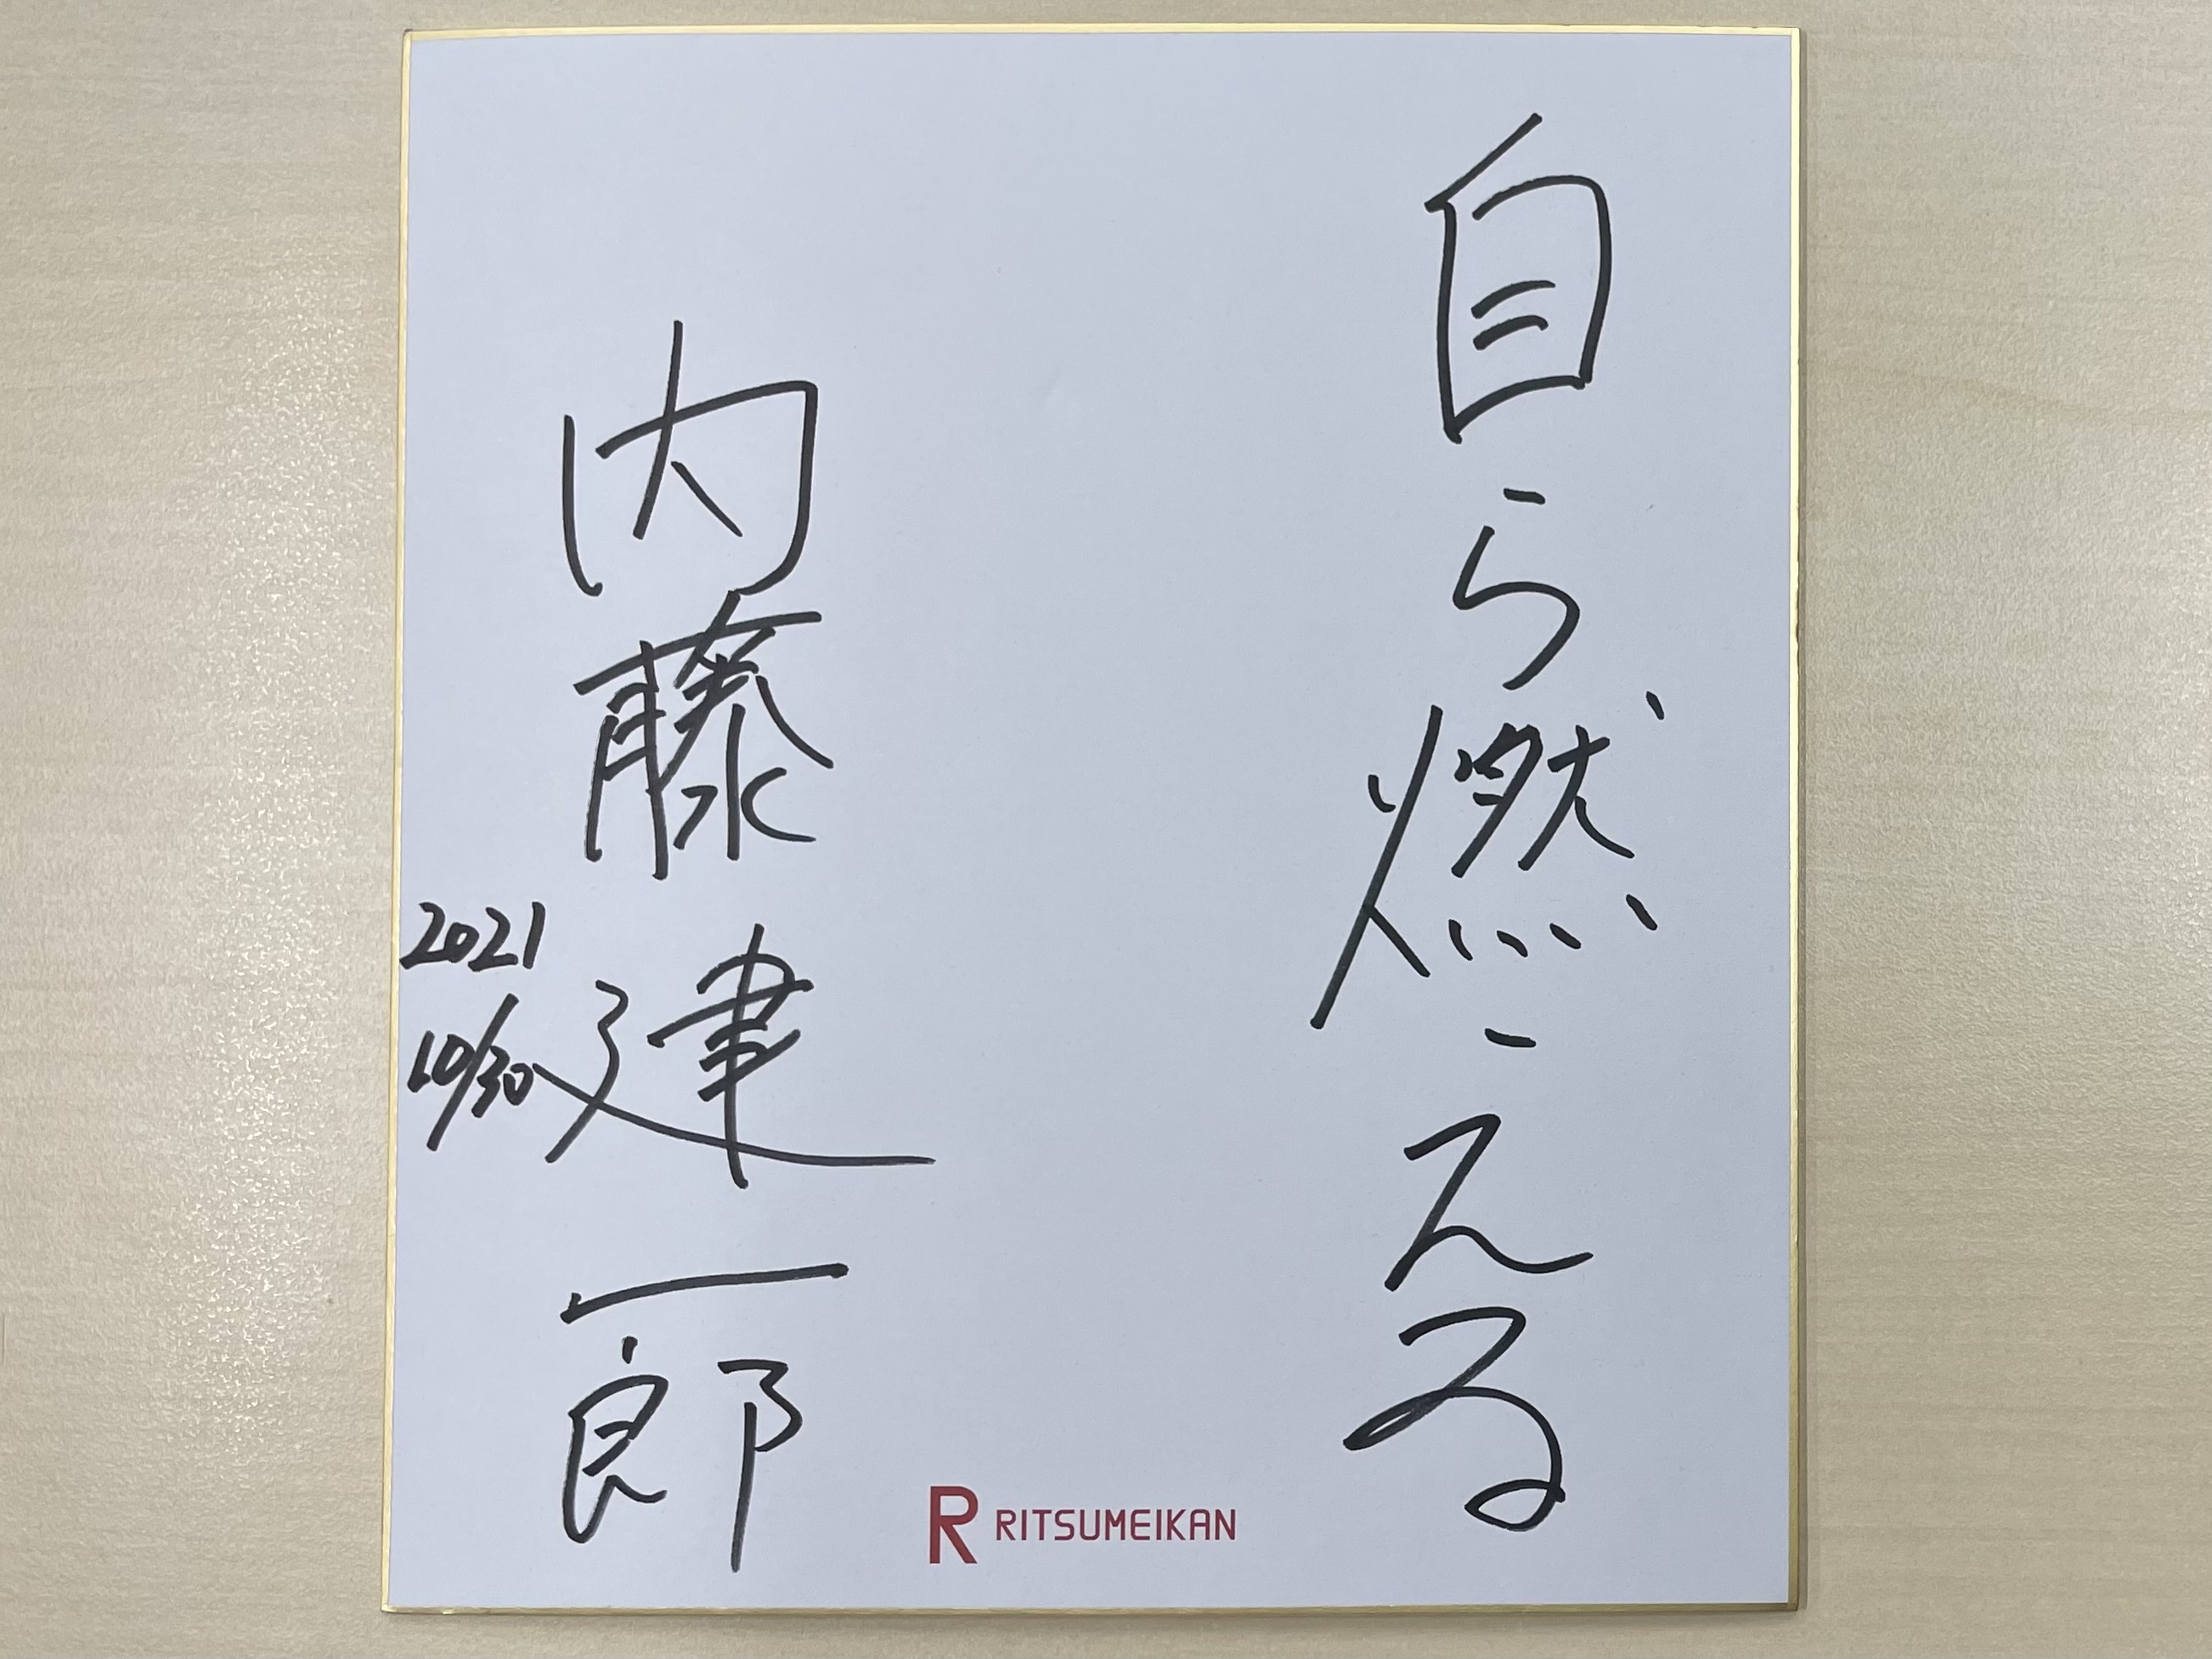 自ら燃える
内藤建一郎
2021
10/30
R RITSUMEIKAN